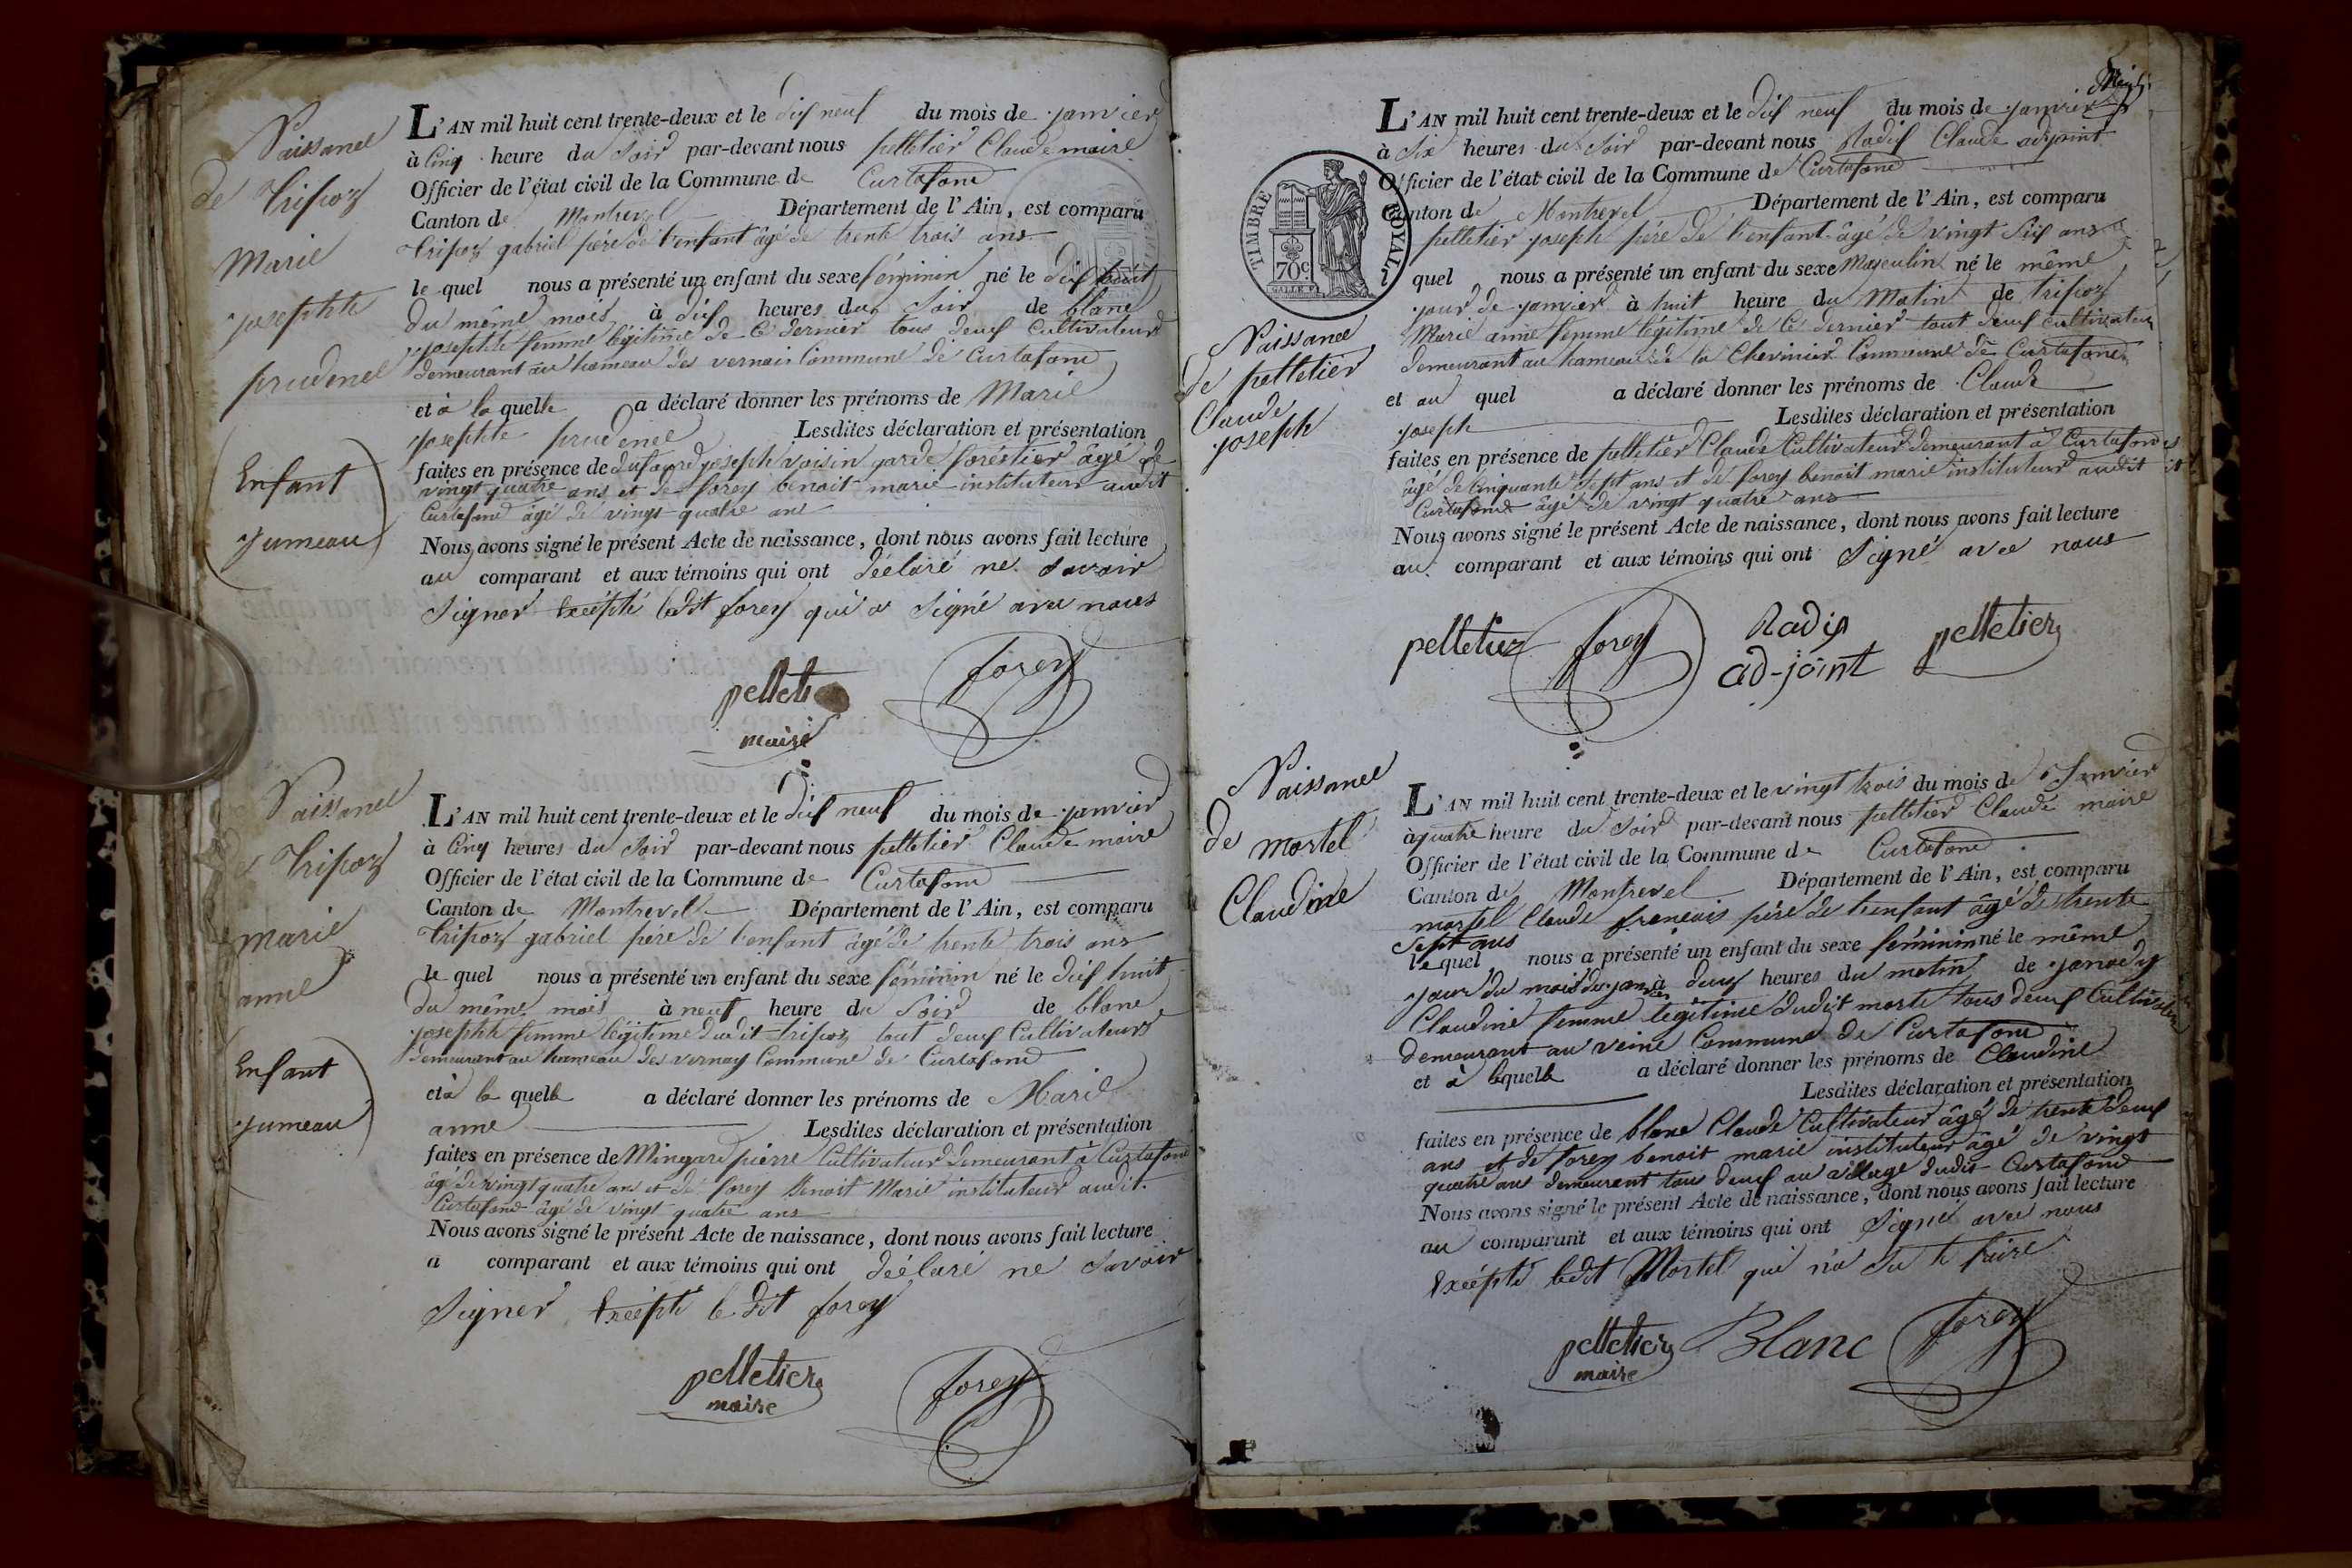 Naissance
de Tripoz
Marie
josephte
prudence
Enfant
jumeau
L'AN mil huit cent trente-deux et le dix neuf du mois de janvier
à Cinq heure du Soir par-devant nous pelletier Claude maire
Officier de l'état civil de la Commune de Curtafond
Canton de Montrevel Département de l'Ain, est comparu
Tripoz gabriel père de l'enfant âgé de trente trois ans
le quel nous a présenté un enfant du sexe féminin né le dix huit
du même mois à dix heures du Soir de blanc
josephte femme légitime de Ce dernier tous deux Cultivateurs
demeurant au hameau des vernais Commune de Curtafond
et à la quelle a déclaré donner les prénoms de Marie
josephte prudence Lesdites déclaration et présentation
faites en présence de joseph voisin garde forestier âgé de
vingt quatre ans et de forey benoit marie instituteur audit
Curtafond âgé de vingt quatre ans
Nous avons signé le présent Acte de naissance, dont nous avons fait lecture
au comparant et aux témoins qui ont déclaré ne Savoir
Signer Excépté ledit forey qui a Signé avec nous
pelleti
maire
forey
Naissance
de Tripoz
marie
anne
Enfant
jumeau
L'AN mil huit cent trente-deux et le dix neuf du mois de janvier
à Cinq heures du Soir par-devant nous pelletier Claude maire
Officier de l'état civil de la Commune de Curtafond
Canton de Montrevel Département de l'Ain, est comparu
Tripoz gabriel père de l'enfant âgé de trente trois ans
le quel nous a présenté un enfant du sexe féminin né le dix huit
du même mois à neuf heure du Soir de blanc
josephte femme légitime dudit tripoz tout deux Cultivateurs
demeurant au hameau des vernay Commune de Curtafond
et à la quelle a déclaré donner les prénoms de Marie
anne Lesdites déclaration et présentation
faites en présence de Mingard pierre Cultivateur demeurant à Curtafond
âgé de vingt quatre ans et de forey Benoit Marie instituteur audit
Curtafond âgé de vingt quatre ans
Nous avons signé le présent Acte de naissance, dont nous avons fait lecture
a comparant et aux témoins qui ont déclaré ne Savoir
Signer Excépté le dit forey
pelletier
maire
forey
TIMBRE ROYAL
70 c.
Naissance
de pelletier
Claude
joseph
L'AN mil huit cent trente-deux et le dix neuf du mois de janvier
à Six heures du Soir par-devant nous Radix Claude adjoint
Officier de l'état civil de la Commune de Curtafond
Canton de Montrevel Département de l'Ain, est comparu
pelletier joseph père de l'enfant âgé de vingt Six ans
l quel nous a présenté un enfant du sexe Masculin né le même
jour de janvier à huit heure du Matin de tripoz
Marie anne femme légitime de Ce dernier tout deux cultivateur
demeurant au hameau de la Chevinier Commune de Curtafond
et au quel a déclaré donner les prénoms de Claude
joseph Lesdites déclaration et présentation
faites en présence de pelletier Claude Cultivateur demeurant à Curtafond
âgé de Cinquante Sept ans et de forey benoit marie instituteur audit
Curtafond âgé de vingt quatre ans
Nous avons signé le présent Acte de naissance, dont nous avons fait lecture
au comparant et aux témoins qui ont Signé avec nous
pelletier forey Radix pelletier
ad-joint
Naissance
de mortel
Claudine
L'AN mil huit cent trente-deux et le vingt trois du mois de Janvier
à quatre heure du Soir par-devant nous pelletier Claude maire
Officier de l'état civil de la Commune de Curtafond
Canton de Montrevel Département de l'Ain, est comparu
mortel Claude françois père de l'enfant âgé de trente
Sept ans
le quel nous a présenté un enfant du sexe féminin né le même
jour du mois de janvier à deux heures du matin de janody
Claudine femme légitime dudit mortel tous deux Cultivateur
demeurant au veine Commune de Curtafond
et à lequelle a déclaré donner les prénoms de Claudine
Lesdites déclaration et présentation
faites en présence de blanc Claude Cultivateur âgé de trente deux
ans et de forey benoit marie instituteur âgé de vingt
quatre ans demeurant tous deux au village dudit Curtafond
Nous avons signé le présent Acte de naissance, dont nous avons fait lecture
au comparant et aux témoins qui ont Signé avec nous
Excépté ledit Mortel qui n'a Su le faire
pelletier Blanc forey
maire